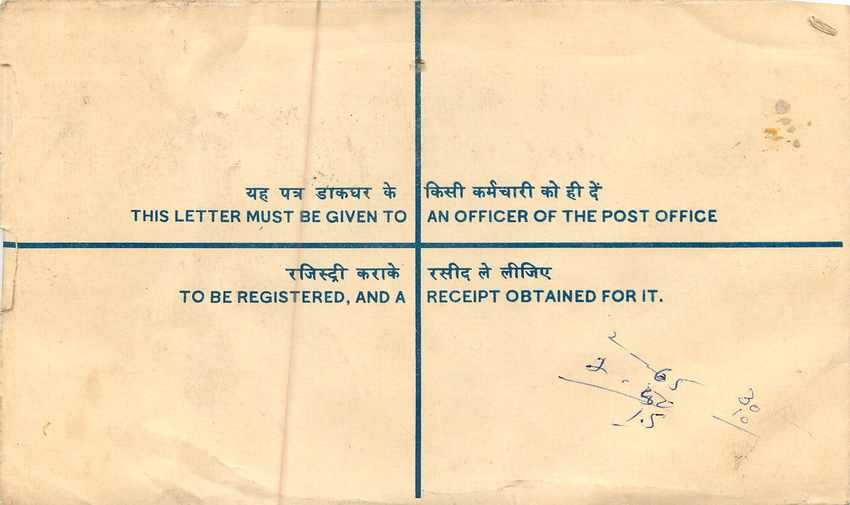 यह पत्र डाकघर के किसी कर्मचारी को ही दें
THIS LETTER MUST BE GIVEN TO AN OFFICER OF THE POST OFFICE
रजिस्ट्री कराके रसीद ले लीजिए
TO BE REGISTERED, AND A RECEIPT OBTAINED FOR IT.
30
10